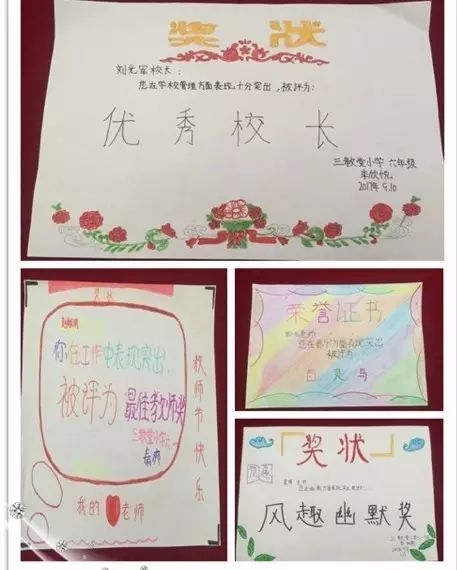 奖状
刘光军校长：
您在学校管理方面表现十分突出，被评为：
优秀校长
三教堂小学 六年级
李欣悦
2017年9.10
奖状
你在工作中表现突出，
被评为 最佳教师奖
三教堂小学六一
教师节快乐
我的 老师
荣誉证书
您在 方面表现突出
被评为
白灵鸟
奖状
风趣幽默奖